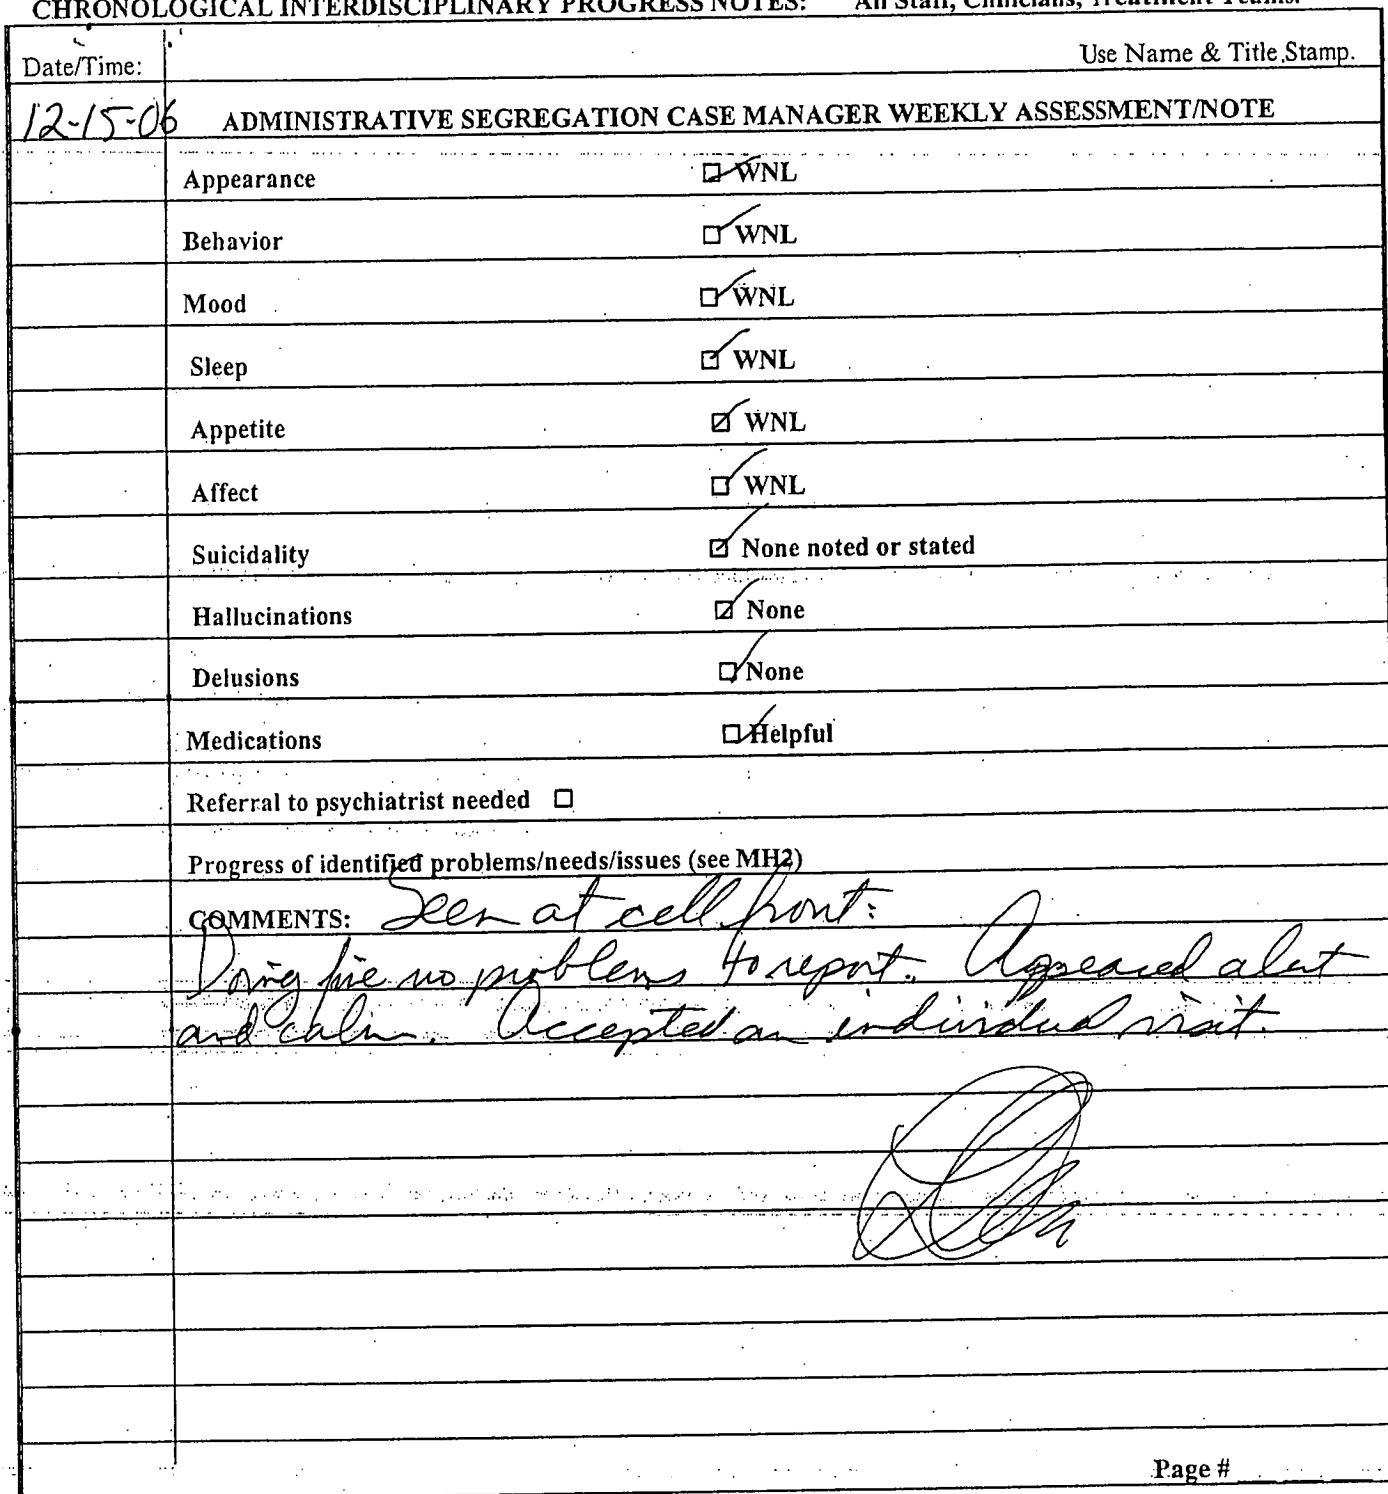 CHRONOLOGICAL INTERDISCIPLINARY PROGRESS NOTES: All Staff, Clinicians, Treatment Teams.
Date/Time: Use Name & Title Stamp.
12-15-06 ADMINISTRATIVE SEGREGATION CASE MANAGER WEEKLY ASSESSMENT/NOTE
Appearance ☑ WNL
Behavior ☑ WNL
Mood ☑ WNL
Sleep ☑ WNL
Appetite ☑ WNL
Affect ☑ WNL
Suicidality ☑ None noted or stated
Hallucinations ☑ None
Delusions ☑ None
Medications ☑ Helpful
Referral to psychiatrist needed ☐
Progress of identified problems/needs/issues (see MH2)
COMMENTS: Seen at cell front:
Doing fine no problems to report. Appeared alert
and calm. Accepted an individual visit.
Page #